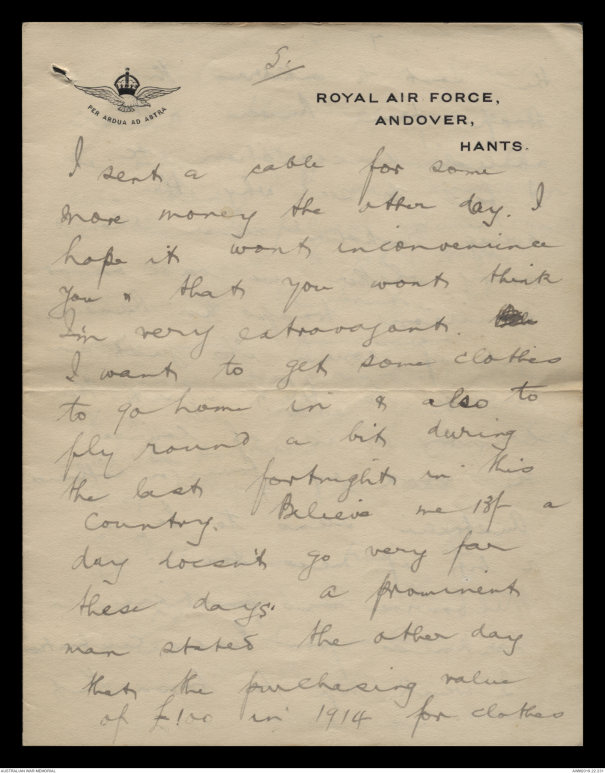 5.
PER ARDUA AD ASTRA
ROYAL AIR FORCE,
ANDOVER,
HANTS.
I sent a cable for some
more money the other day. I
hope it wont inconvenience
you & that you wont think
I'm very extravagant.
I want to get some clothes
to go home in & also to
fly round a bit during
the last fortnight in this
Country. Believe me 13/- a
day doesn't go very far
these days. A prominent
man stated the other day
that the purchasing value
of £100 in 1914 for clothes
AUSTRALIAN WAR MEMORIAL